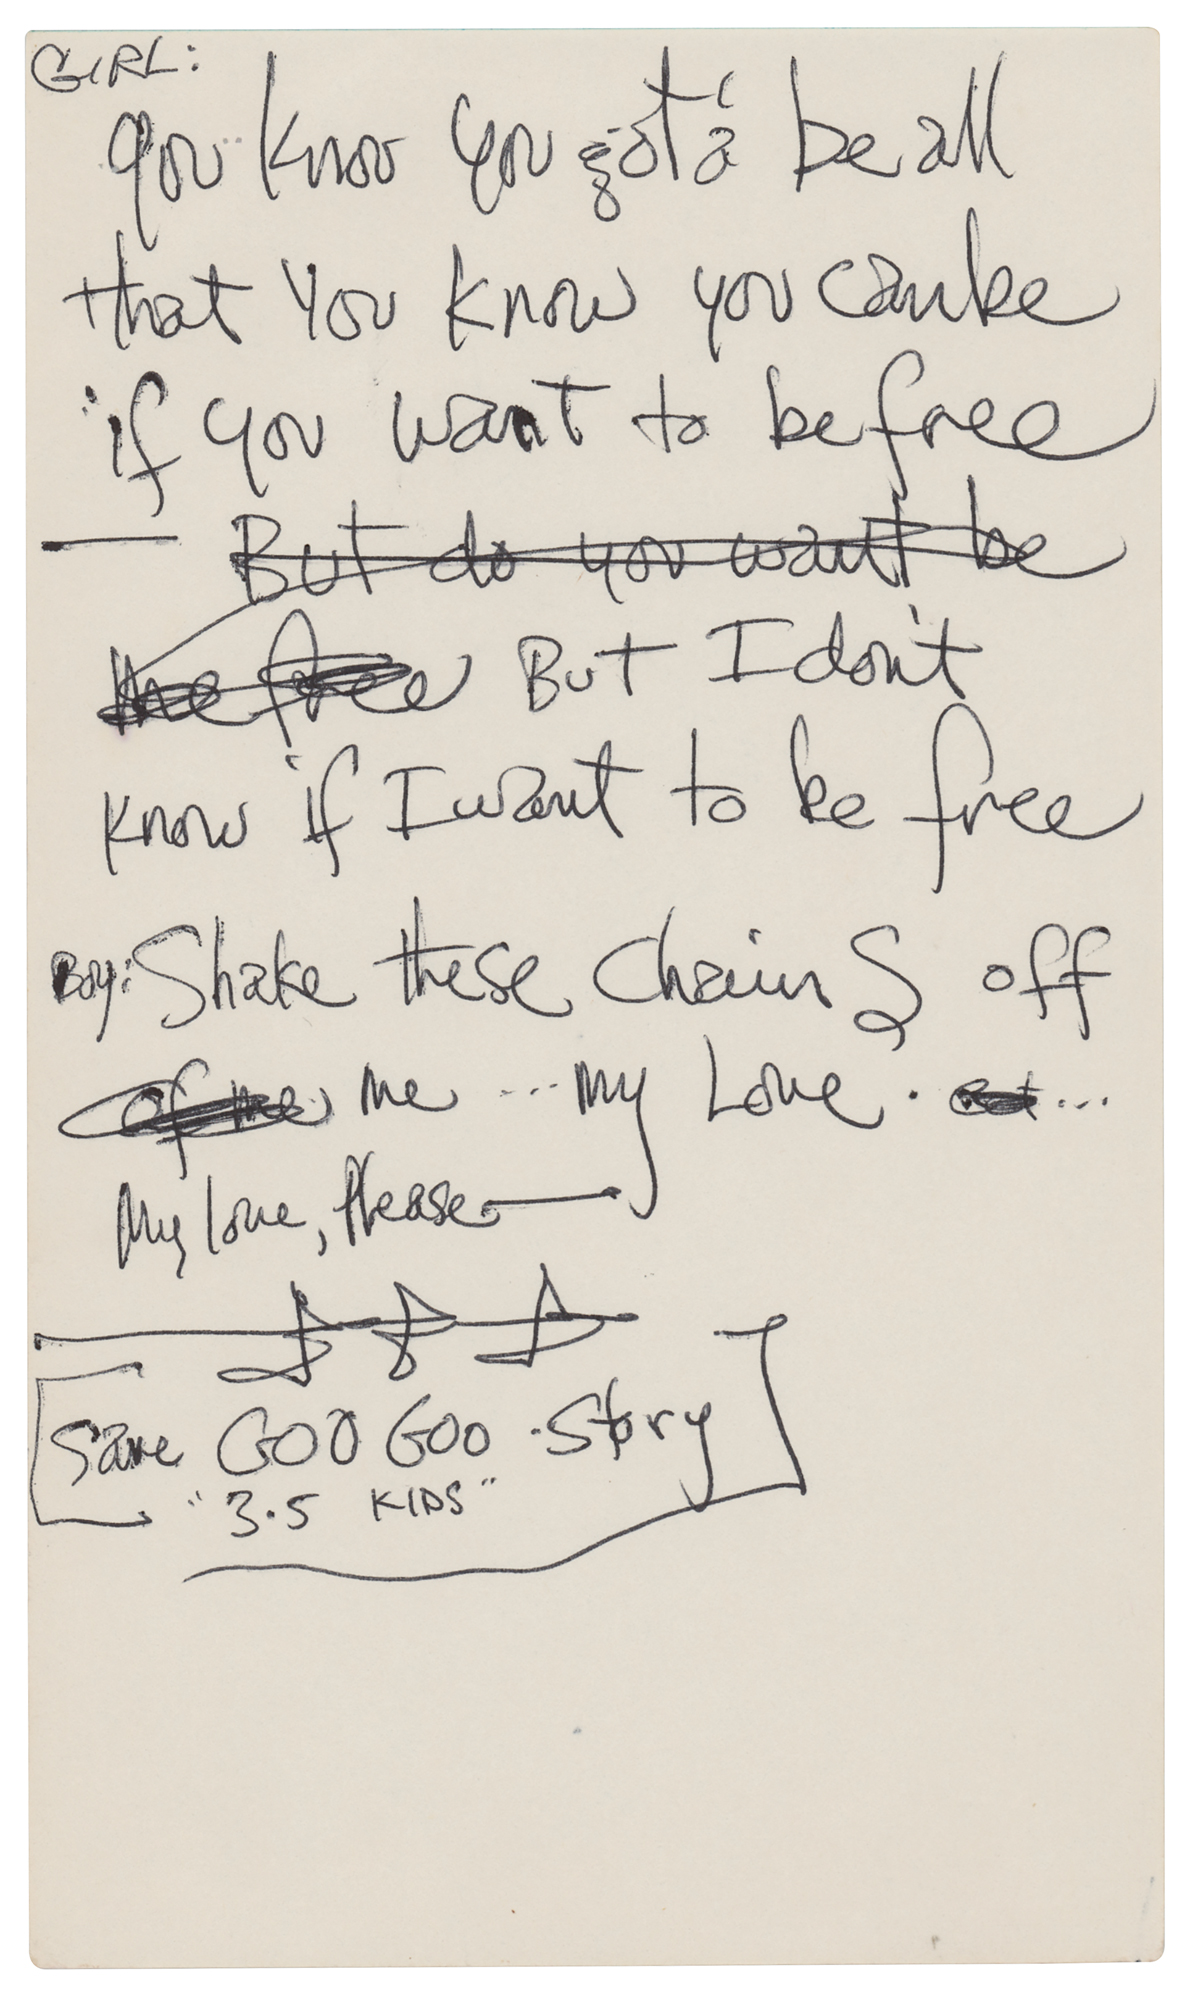 GIRL:
you know you gotá be all
that you know you can be
if you want to be free
— But do you want be
me free But I don't
know if I want to be free
Boy: Shake these chains off
of me me ... my Love. But ...
My love, Please —
Save GOO GOO Story
"3.5 KIDS"